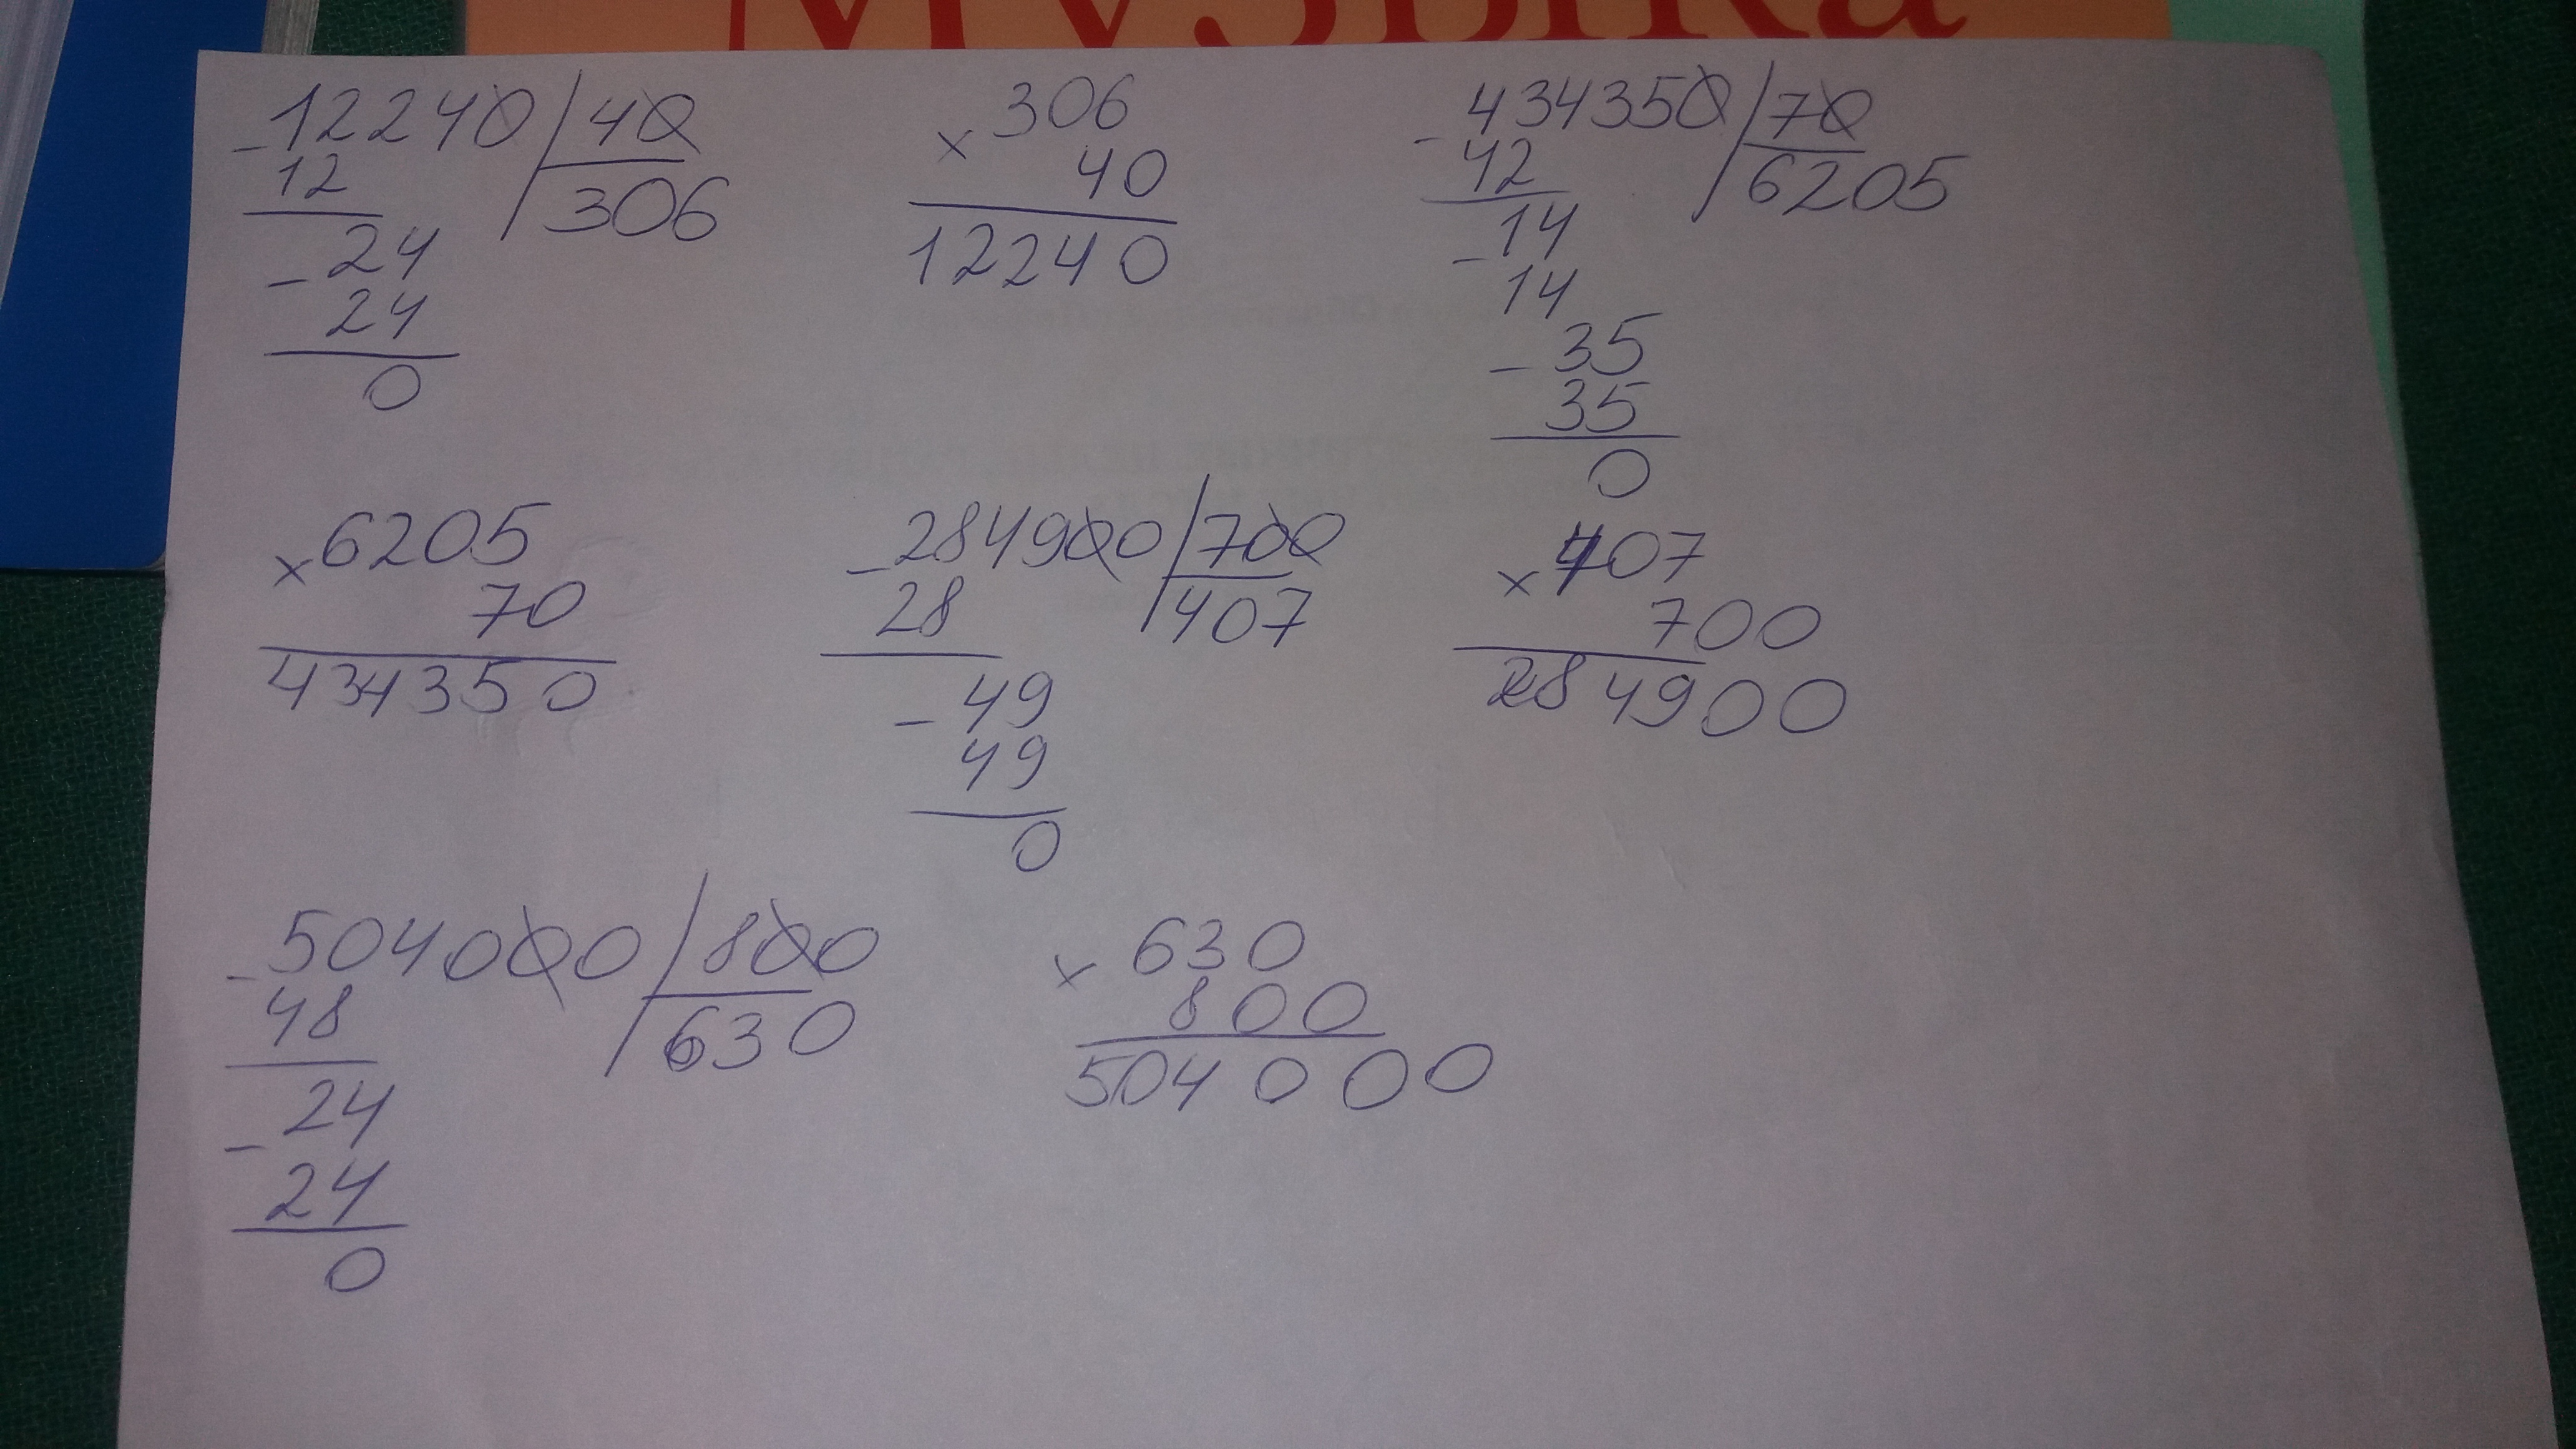 МУЗЫКа
- 12240 | 40
12
306
- 24
24
0
× 306
40
12240
- 434350 | 70
42
6205
- 14
14
- 35
35
0
× 6205
70
434350
- 284900 | 700
28
407
- 49
49
0
× 407
700
284900
- 504000 | 800
48
630
- 24
24
0
× 630
800
504000